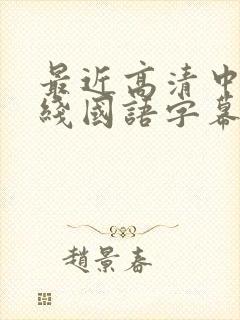 最近高清中
綫國語字幕
趙景春